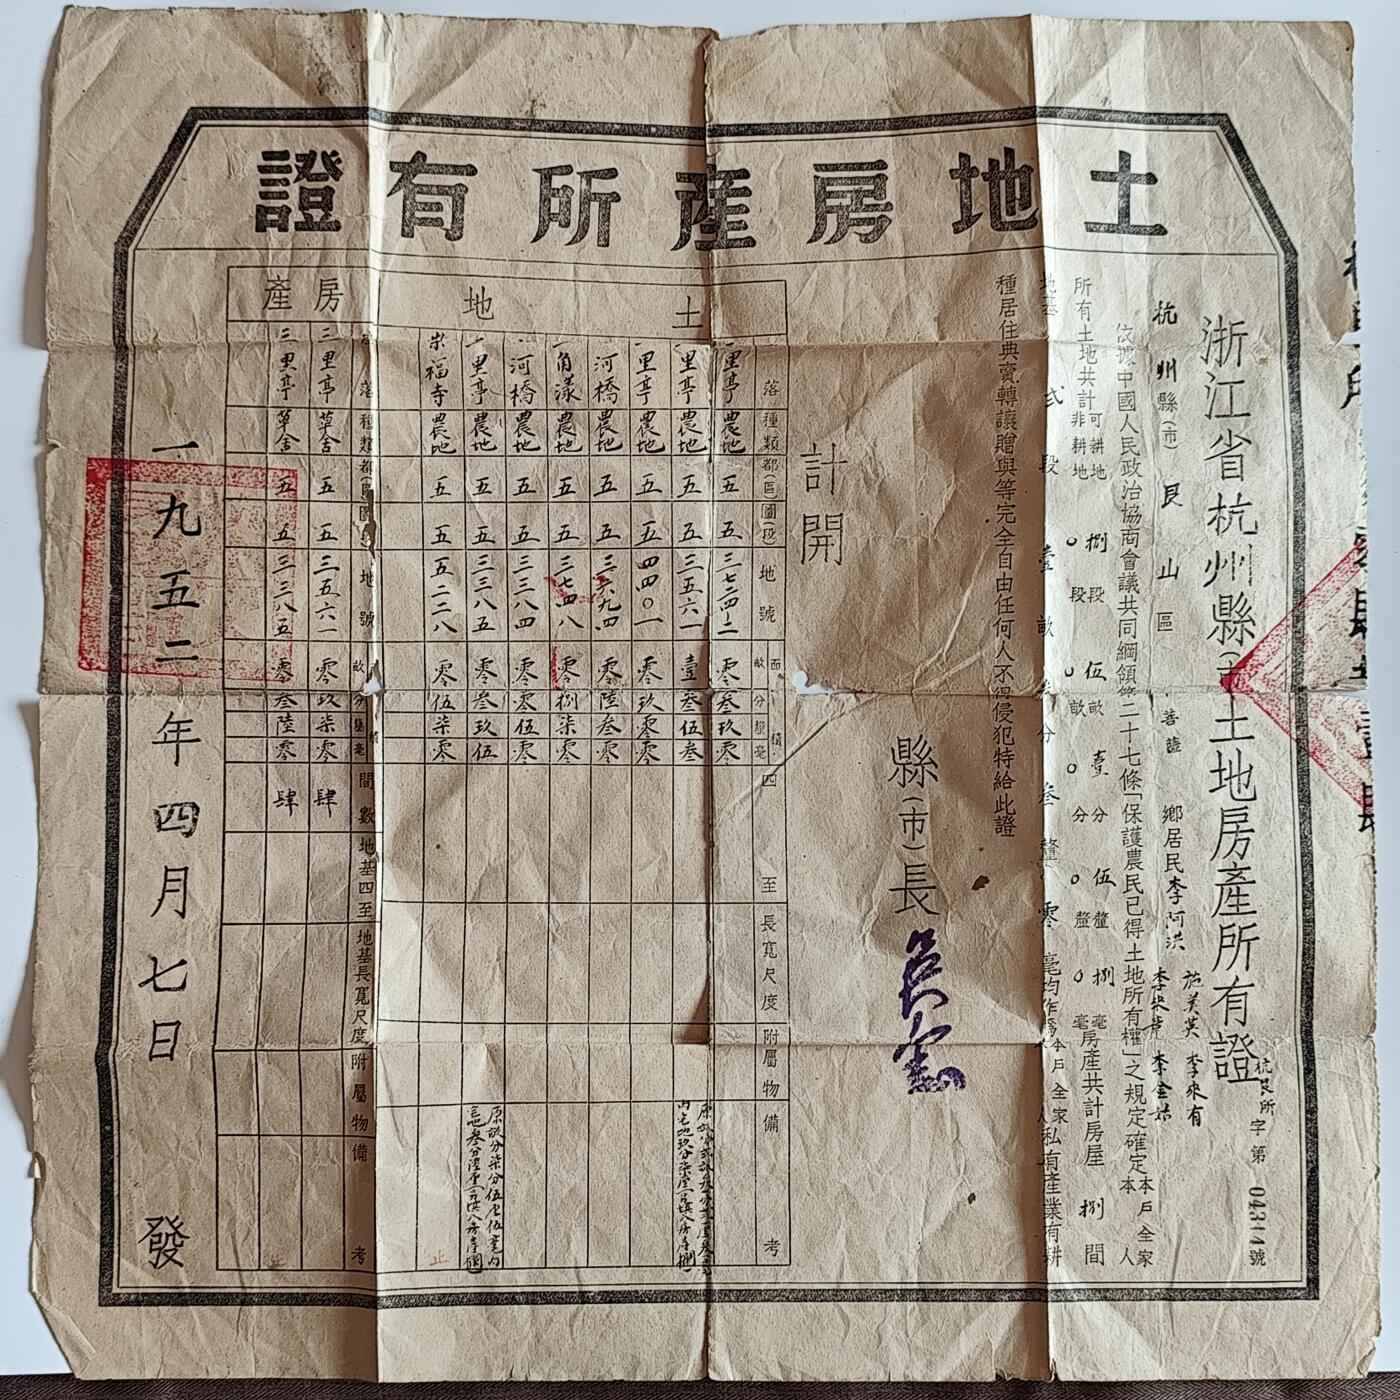 土地房產所有證
浙江省杭州縣(市)土地房產所有證
杭良所字第 號
杭州縣(市)艮山區 菩薩 鄉居民李阿洪 施美英 李來有 李金姑
依據中國人民政治協商會議共同綱領第二十七條「保護農民已得土地所有權」之規定確定本戶全家本 人
所有土地共計可耕地 捌段 伍畝 壹分 伍釐 捌毫房產共計房屋 捌間
非耕地 〇段 〇畝 〇分 〇釐 〇毫
地基 弍段 壹畝 分 叁釐 零毫均作為本戶全家 人私有產業有耕
種居住典賣轉讓贈與等完全自由任何人不得侵犯特給此證
縣(市)長
計開
土地
落 種類 都(區)圖(段) 地號 面積 畝 分 釐 毫 四至 長寬尺度 附屬物 備考
里亭 農地 五 五 零 叁 玖 零
里亭 農地 五 五 三五六一 壹 叁 伍 叁
里亭 農地 五 五 四四〇一 零 玖 零 零
河橋 農地 五 五 三六九四 零 陸 叁 零
角漾 農地 五 五 三七四八 零 捌 柒 零
河橋 農地 五 五 三三八四 零 零 伍 零
里亭 農地 五 五 三三八五 零 叁 玖 伍
崇福寺 農地 五 五 五二二八 零 伍 柒 零
房產
落 種類 都(區)圖 地號 畝 分 釐 毫 間數 地基四至 地基長寬尺度 附屬物 備考
三里亭 草舍 五 五 三五六一 零 玖 柒 零 肆
三里亭 草舍 五 五 三三八五 零 叁 陸 零 肆
一九五二年四月七日 發